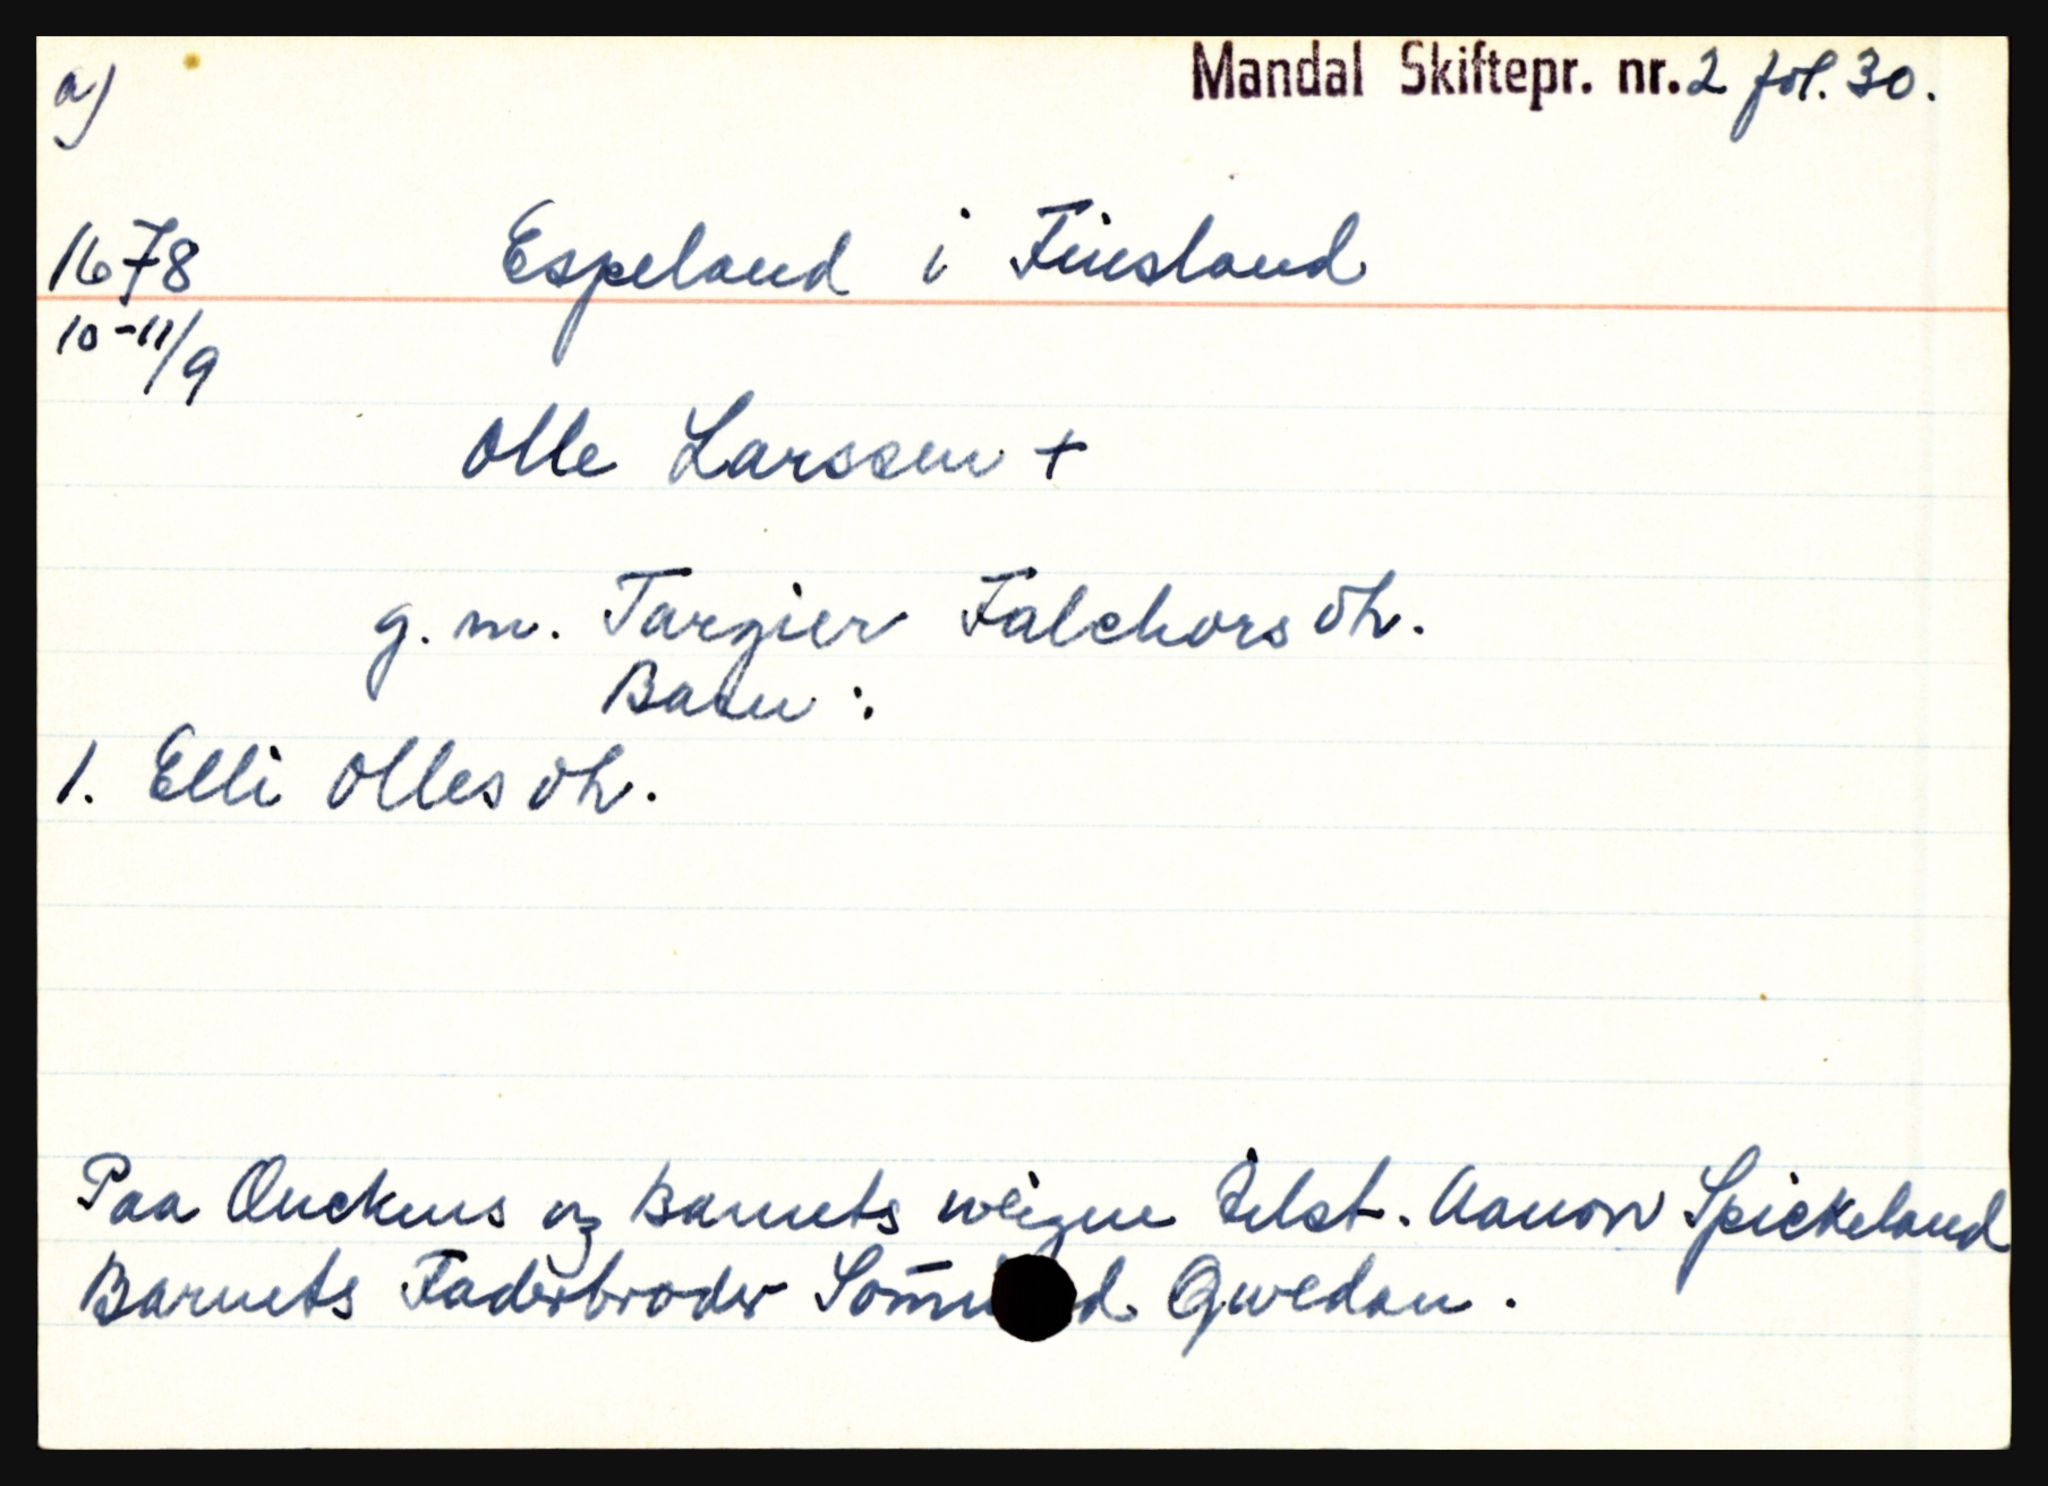 a)
Mandal Skiftepr. nr. 2 fol. 30.
1678 Espeland i Finsland
10-11/9
Olle Larssen +
g. m. Targier Falchorsdtr.
Barn:
1. Elli Ollesdtr.
Paa Enckens og Barnets weigne tilst. Aanon Spickeland
Barnets Faderbroder Qwedan.